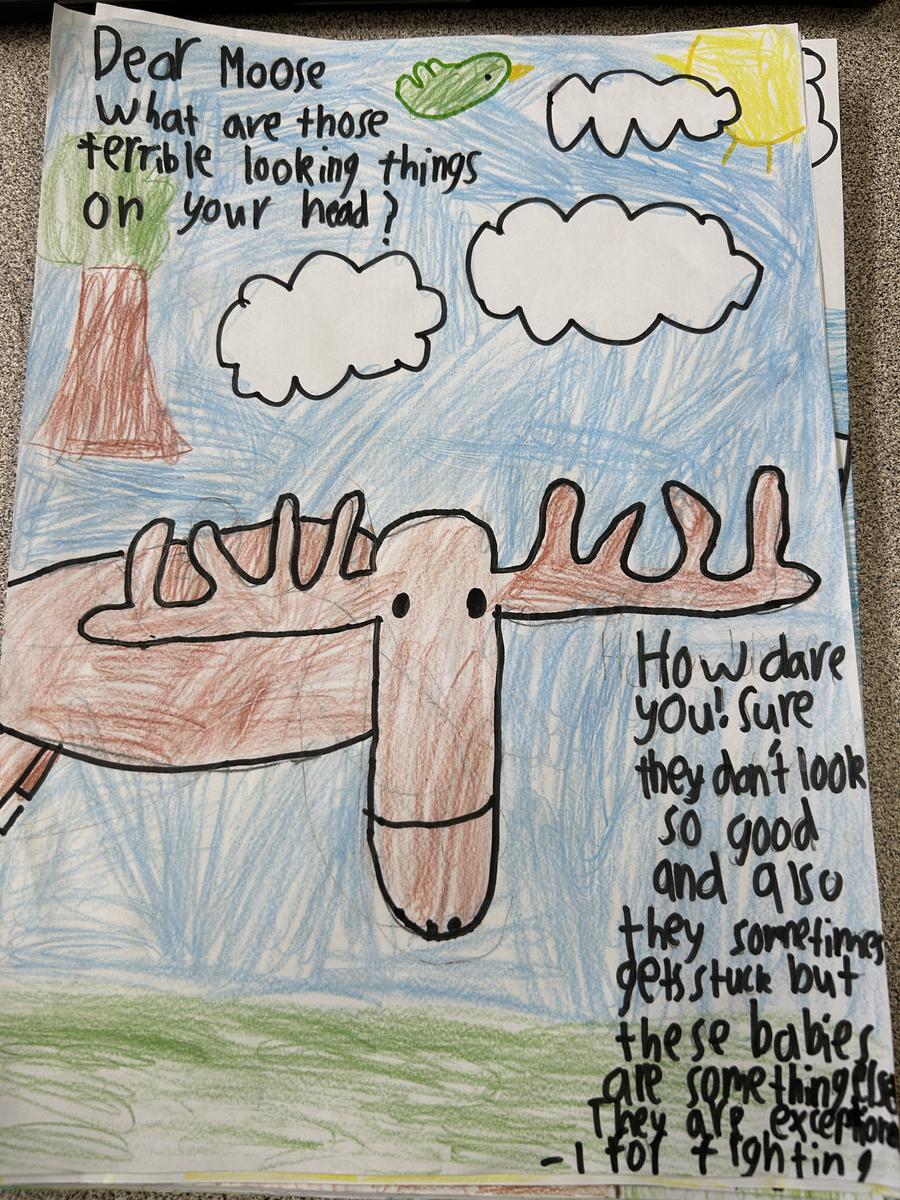 Dear Moose
What are those
terrible looking things
on your head?
How dare
you! Sure
they don't look
so good
and also
they sometimes
gets stuck but
these babies
are something else
They are exception
-l for fighting